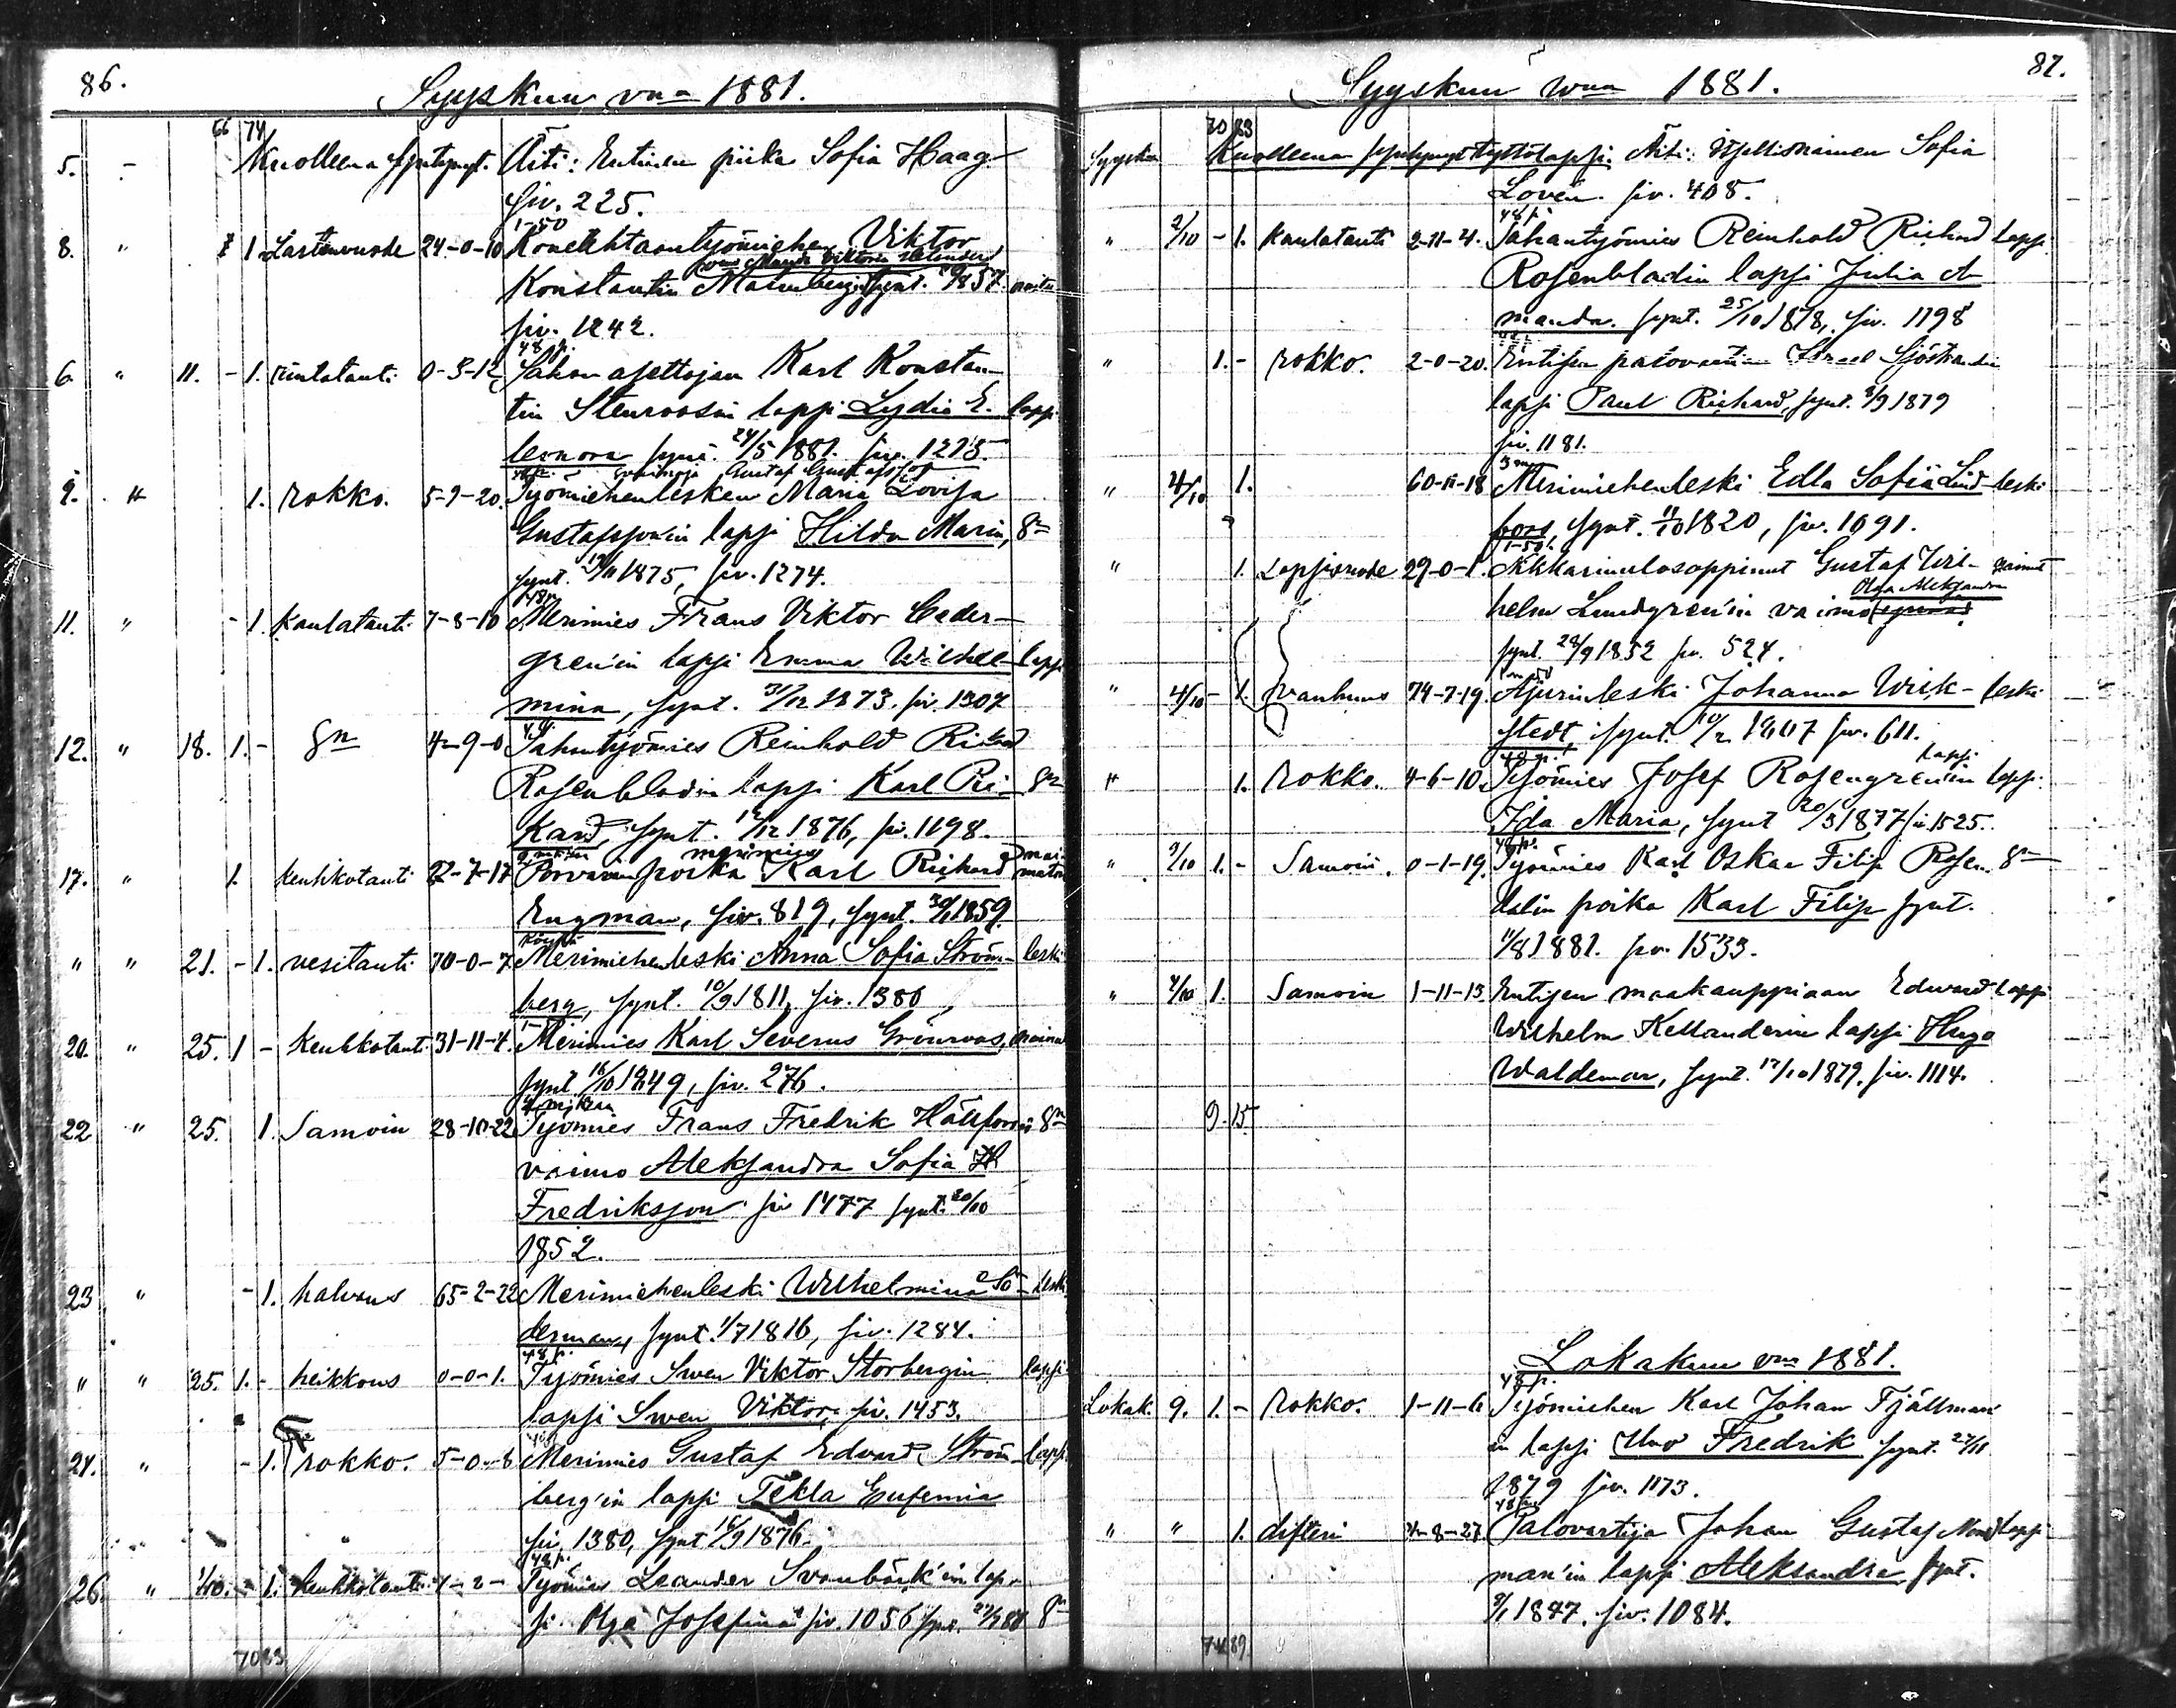 86.
Syyskuu vna 1881.
66 74
5. - Kuolleena syntynyt. Äiti: Entinen piika Sofia Haag
siv. 225.
1-50
8. " 1 Lastenvuode 24-0-10 Konetehtaantyömiehen Viktor
Konstantin
siv. 1242.
48 p.
6. " 11. - 1. rintatauti 0-3-12 Sahan asettajan Karl Konstan-
tin Stenroosin lapsi Lydia E- lapsi
leonora synt. 24/5 1881. siv. 1275.
Gustaf Gustafsson
9. " 1. rokko. 5-9-20. Työmiehenlesken Maria Lovisa
Gustafsson'in lapsi Hilda Maria, 8n
synt. 19/11 1875, siv. 1274.
48 p.
11. " - 1. kaulatauti 7-8-10 Merimies Frans Viktor Ceder-
gren'in lapsi Emma Wilhel- lapsi
mina, synt. 31/12 1873. siv. 1307
12. " 18. 1. - 8n 4-9-0 Sahantyömies Reinhold Rikard
Rosenbladin lapsi Karl Ri- 8n
kard, synt. 12/12 1876, siv. 1198.
merimies
17. " 1. keuhkotauti 22-7-17 Porvarin poika Karl Richard naimaton
Engman, siv. 819, synt. 30/1 1859.
köyhä
" " 21. - 1. vesitauti 70-0-7 Merimiehenleski Anna Sofia Ström- leski
berg, synt. 10/9 1811, siv. 1380
20. " 25. 1 - Keuhkotauti 31-11-4. Merimies Karl Severus Grönroos, nainut
synt 16/10 1849, siv. 276.
22 " 25. 1. Samoin 28-10-22 Työmies Frans Fredrik 8n
vaimo Aleksandra Sofia
Fredriksson siv 1477 synt. 30/10
1852.
23 " - 1. halvaus 65-2-22 Merimiehenleski Wilhelmina Sö- leski
derman, synt. 1/7 1816, siv. 1284.
48 p.
" " 25. 1. - heikkous 0-0-1. Työmies Swen Viktor Storbergin lapsi
lapsi Swen Viktor, siv. 1453.
24. " - 1. rokko. 5-0-8 Merimies Gustaf Edvard Ström- lapsi
berg'in lapsi Tekla Eufemia
siv. 1380, synt 16/9 1876.
48 p.
26. " 1/10. - 1. keuhkotauti 1-2- Työmies Leander Svanbäck'in lap-
si Olga Josefina siv. 1056 synt. 8n
70 83
87.
Syyskuu wnn 1881.
70 83
Syysk. Kuolleena syntynyt tyttölapsi. Äiti: Itsellisnainen Sofia
Lovén. siv. 408.
48 p.
" 2/10 - 1. Kaulatauti 2-11-4. Sahantyömies Reinhold Richard lapsi
Rosenbladin lapsi Julia A-
manda. synt. 25/10 1878, siv. 1198
" 1. - rokko. 2-0-20. Entisen palovartian Israel Sjöstrandin
lapsi Paul Richard, synt. 8/9 1879
siv. 1181.
" 4/10 1. 60-11-18 Merimiehenleski Edla Sofia Lind- leski
foos, synt. 11/10 1820, siv. 1091.
1-50.
" 1. Lapsivuode 29-0-1. Nikkarinulosoppinut Gustaf Wil- nainut
Olga Aleksandra
helm Lundgren'in vaimo
synt. 28/9 1852 siv. 524.
" 4/10 - 1. vanhuus 74-7-19. Ajurinleski Johanna Wik- leski
stedt synt. 10/2 1807 siv. 611.
48 p. lapsi
" 1. rokko. 4-6-10. Työmies Josef Rosengren'in lapsi
Ida Maria, synt 20/3 1877 siv. 1525.
48 p.
" 2/10 1. - Samoin. 0-1-19. Työmies Karl Oskar Filip Rosen- 8n
dalin poika Karl Filip synt.
11/8 1881. siv. 1533.
" 4/10 1. Samoin 1-11-13. Entisen maakauppiaan Edward lapsi
Wilhelm Kellanderin lapsi Hugo
Waldemar, synt. 17/10 1879. siv. 1114.
9. 15.
Lokakuu vna 1881.
48 p.
Lokak. 9. 1. - rokko. 1-11-6 Työmiehen Karl Johan Fjällman'
in lapsi Uno Fredrik synt.
1879 siv. 1173.
48 p.
" " 1. difteri 4-8-27. Palovartija Johan Gustaf lapsi
man'in lapsi Aleksandra, synt.
1877. siv. 1084.